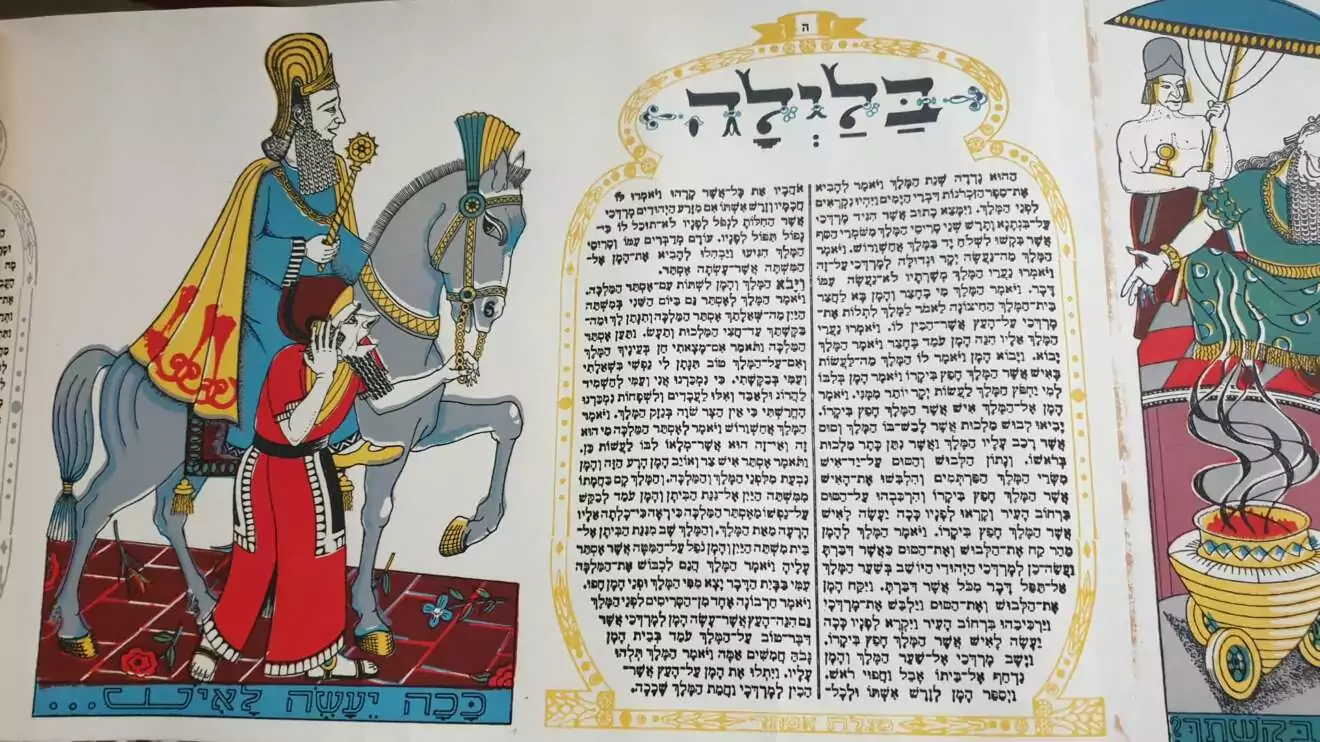 ה
בַּלַּיְלָה
ההוא נדדה שנת המלך ויאמר להביא
את־ספר הזכרונות דברי הימים ויהיו נקראים
לפני המלך. וימצא כתוב אשר הגיד מרדכי
על־בגתנא ותרש שני סריסי המלך משמרי הסף
אשר בקשו לשלח יד במלך אחשורוש. ויאמר
המלך מה־נעשה יקר וגדולה למרדכי על־זה
ויאמרו נערי המלך משרתיו לא־נעשה עמו
דבר. ויאמר המלך מי בחצר והמן בא לחצר
בית־המלך החיצונה לאמר למלך לתלות את־
מרדכי על־העץ אשר־הכין לו. ויאמרו נערי
המלך אליו הנה המן עמד בחצר ויאמר המלך
יבוא. ויבוא המן ויאמר לו המלך מה־לעשות
באיש אשר המלך חפץ ביקרו ויאמר המן בלבו
למי יחפץ המלך לעשות יקר יותר ממני. ויאמר
המן אל־המלך איש אשר המלך חפץ ביקרו.
יביאו לבוש מלכות אשר לבש־בו המלך וסוס
אשר רכב עליו המלך ואשר נתן כתר מלכות
בראשו. ונתון הלבוש והסוס על־יד־איש
משרי המלך הפרתמים והלבשו את־האיש
אשר המלך חפץ ביקרו והרכבהו על־הסוס
ברחוב העיר וקראו לפניו ככה יעשה לאיש
אשר המלך חפץ ביקרו. ויאמר המלך להמן
מהר קח את־הלבוש ואת־הסוס כאשר דברת
ועשה־כן למרדכי היהודי היושב בשער המלך
אל־תפל דבר מכל אשר דברת. ויקח המן
את־הלבוש ואת־הסוס וילבש את־מרדכי
וירכיבהו ברחוב העיר ויקרא לפניו ככה
יעשה לאיש אשר המלך חפץ ביקרו.
וישב מרדכי אל־שער המלך והמן
נדחף אל־ביתו אבל וחפוי ראש.
ויספר המן לזרש אשתו ולכל־
אהביו את כל־אשר קרהו ויאמרו לו
חכמיו וזרש אשתו אם מזרע היהודים מרדכי
אשר החלות לנפל לפניו לא־תוכל לו כי־
נפול תפול לפניו. עודם מדברים עמו וסריסי
המלך הגיעו ויבהלו להביא את־המן אל־
המשתה אשר־עשתה אסתר.
ויבא המלך והמן לשתות עם־אסתר המלכה.
ויאמר המלך לאסתר גם ביום השני במשתה
היין מה־שאלתך אסתר המלכה ותנתן לך ומה־
בקשתך עד־חצי המלכות ותעש. ותען אסתר
המלכה ותאמר אם־מצאתי חן בעיניך המלך
ואם־על־המלך טוב תנתן לי נפשי בשאלתי
ועמי בבקשתי. כי נמכרנו אני ועמי להשמיד
להרוג ולאבד ואלו לעבדים ולשפחות נמכרנו
החרשתי כי אין הצר שוה בנזק המלך. ויאמר
המלך אחשורוש ויאמר לאסתר המלכה מי הוא
זה ואי־זה הוא אשר־מלאו לבו לעשות כן.
ותאמר אסתר איש צר ואויב המן הרע הזה והמן
נבעת מלפני המלך והמלכה. והמלך קם בחמתו
ממשתה היין אל־גנת הביתן והמן עמד לבקש
על־נפשו מאסתר המלכה כי ראה כי־כלתה אליו
הרעה מאת המלך. והמלך שב מגנת הביתן אל־
בית משתה היין והמן נפל על־המטה אשר אסתר
עליה ויאמר המלך הגם לכבוש את־המלכה
עמי בבית הדבר יצא מפי המלך ופני המן חפו.
ויאמר חרבונה אחד מן־הסריסים לפני המלך
גם הנה־העץ אשר־עשה המן למרדכי אשר
דבר־טוב על־המלך עמד בבית המן
גבה חמשים אמה ויאמר המלך תלהו
עליו. ויתלו את המן על־העץ אשר־
הכין למרדכי וחמת המלך שככה.
מגלת אסתר
כָּכָה יֵעָשֶׂה לָאִישׁ...
בקשתך?